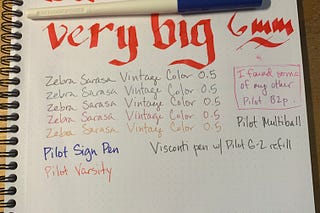 very big 6mm
Zebra Sarasa Vintage Color 0.5
Zebra Sarasa Vintage Color 0.5
Zebra Sarasa Vintage Color 0.5
Zebra Sarasa Vintage Color 0.5
Zebra Sarasa Vintage Color 0.5
I found some
of my other
Pilot B2p.
Pilot Multiball
Pilot Sign Pen
Visconti pen w/ Pilot G-2 refill
Pilot Varsity